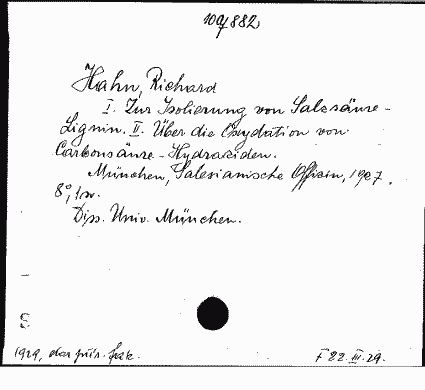 109882
Hahn, Richard
I. Zur Isolierung von Salzsäure-
Lignin. II. Über die Oxydation von
Carbonsäure-Hydraziden.
München, Salesianische Offizin, 1927.
8°,
Diss. Univ. München.
1929, dar jur. fak.
F 22. III. 29.